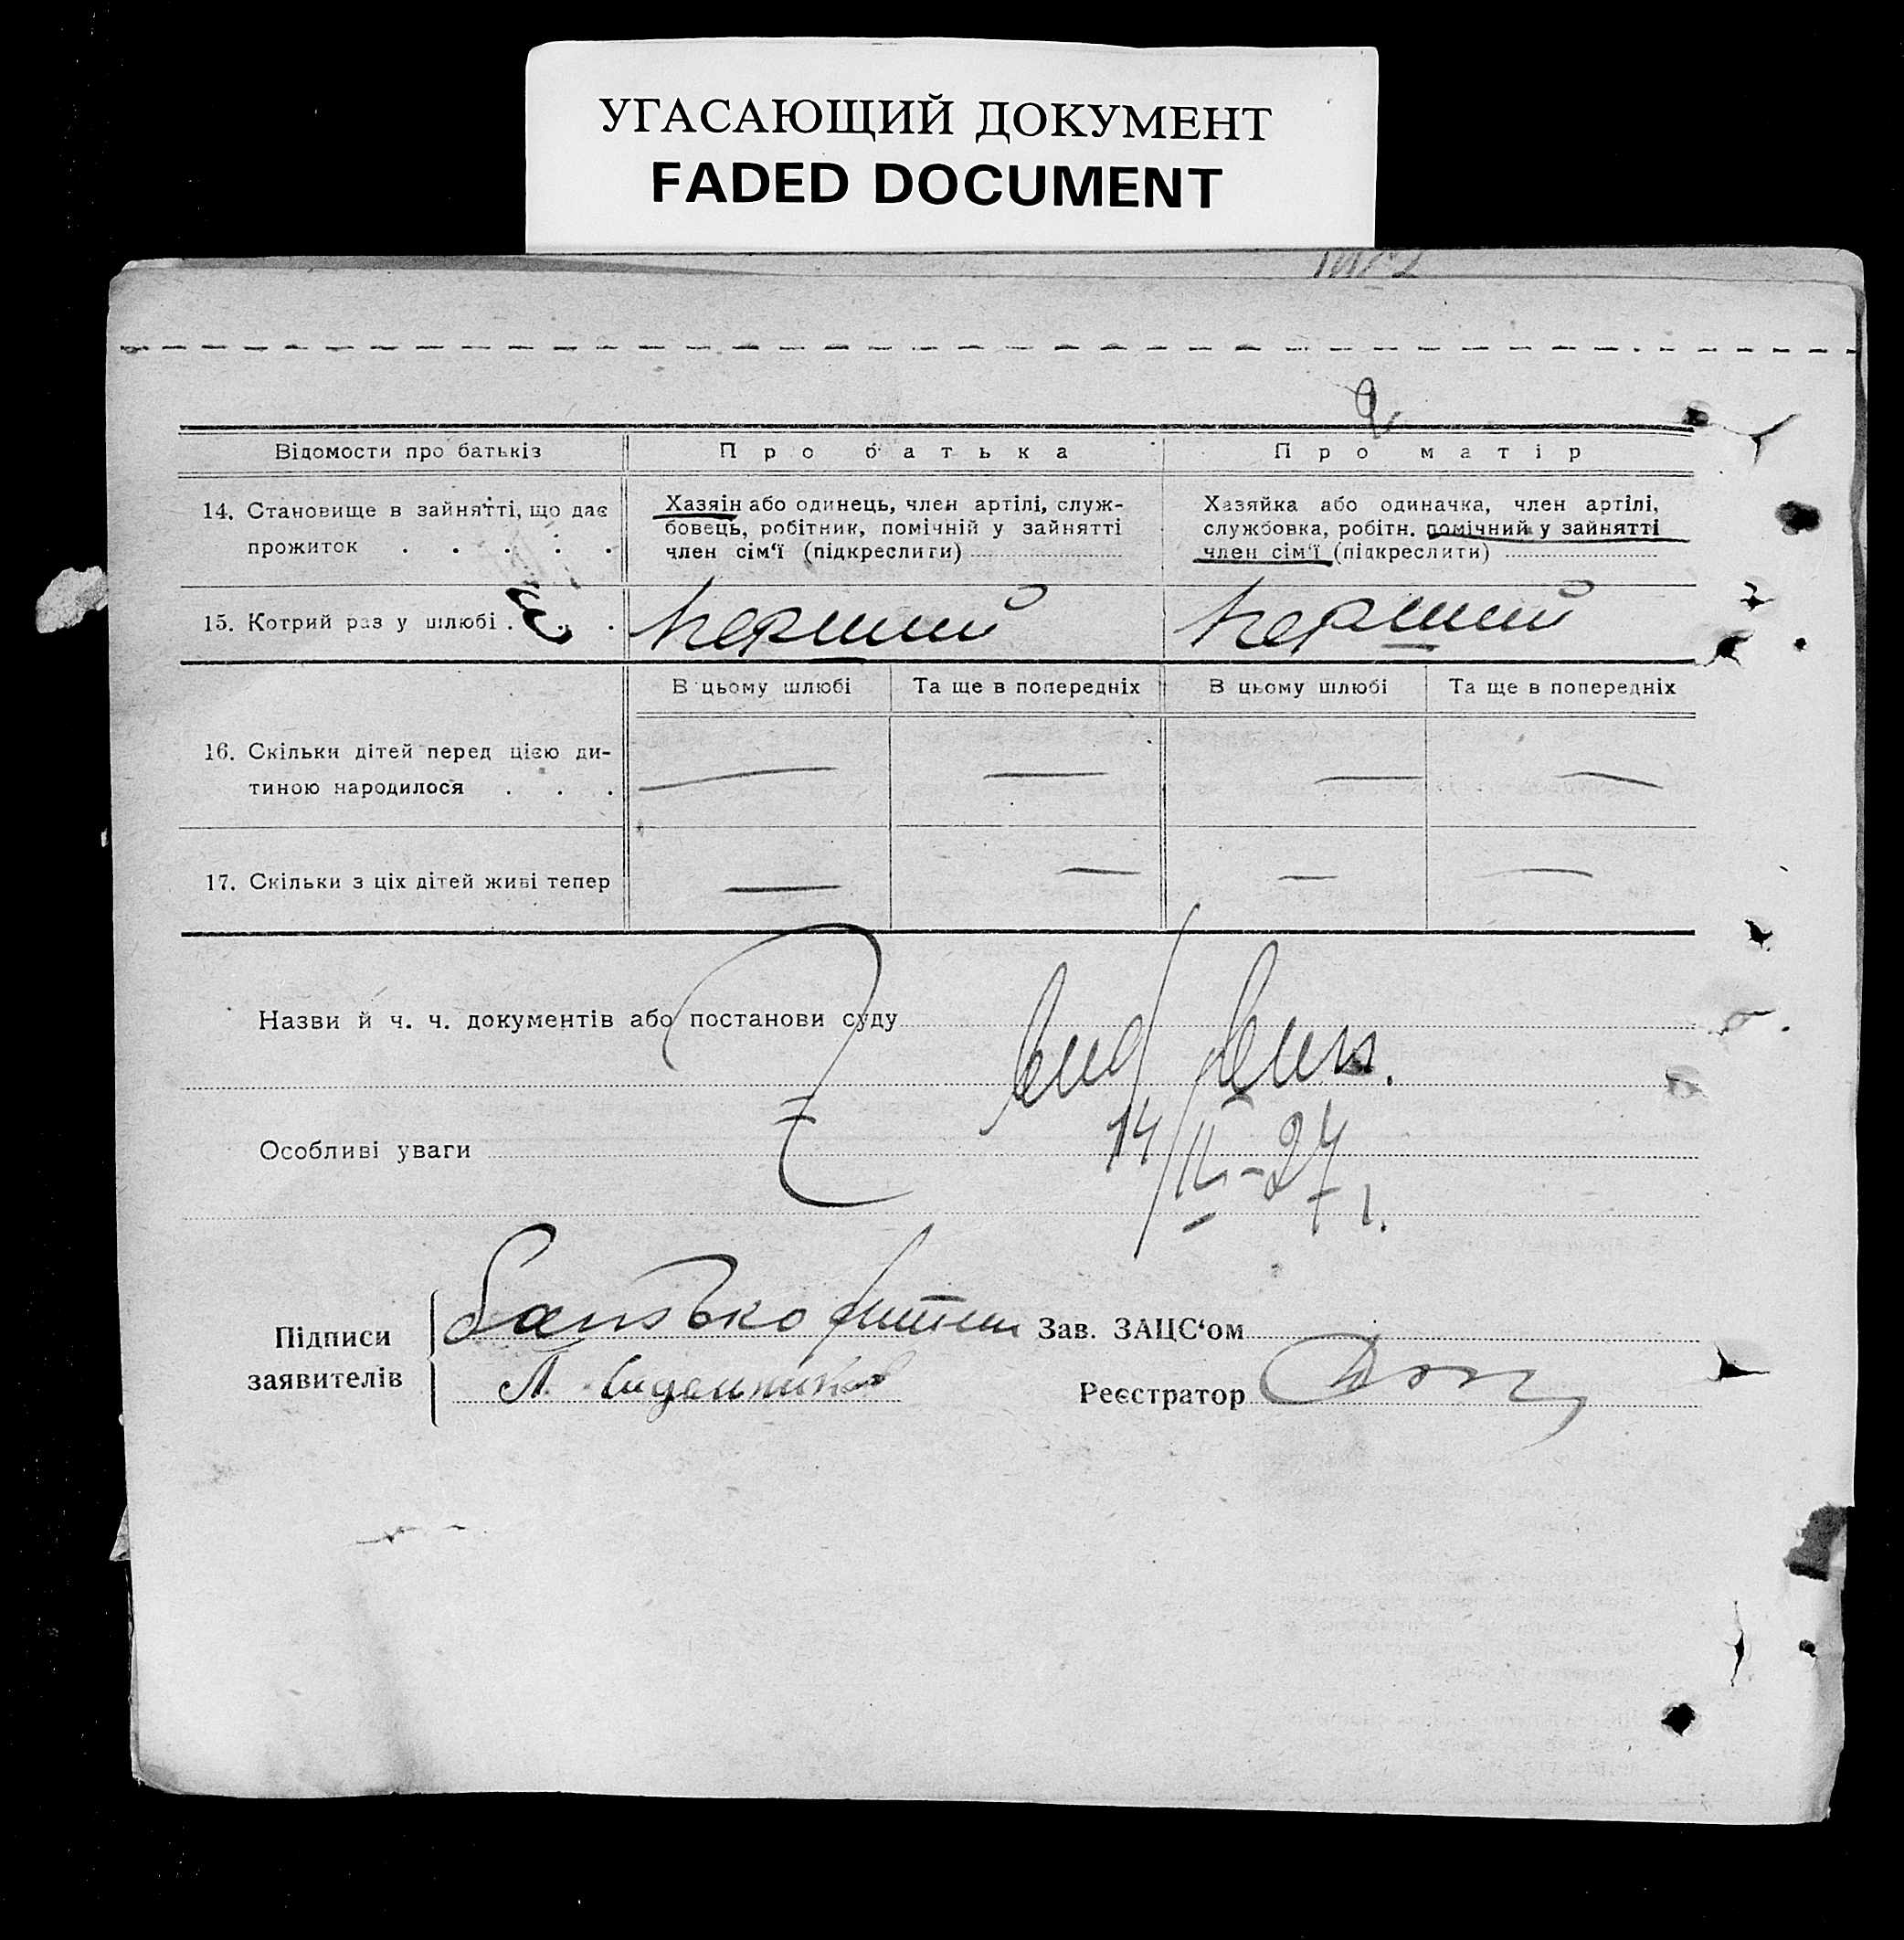 УГАСАЮЩИЙ ДОКУМЕНТ
FADED DOCUMENT
Відомости про батьків
Про батька
Про матір
14. Становище в зайнятті, що дає
прожиток . . . . .
Хазяін або одинець, член артілі, служ-
бовець, робітник, помічній у зайнятті
член сім'ї (підкреслити)
Хазяйка або одиначка, член артілі,
службовка, робітн. помічний у зайнятті
член сім'ї (підкреслити)
15. Котрий раз у шлюбі . . .
перший
перший
В цьому шлюбі
Та ще в попередніх
В цьому шлюбі
Та ще в попередніх
16. Скільки дітей перед цією ди-
тиною народилося . . .
— — — —
17. Скільки з ціх дітей живі тепер
— — — —
Назви й ч. ч. документів або постанови суду
Особливі уваги
14/II-27 г.
Підписи
заявителів
батько
Зав. ЗАЦС'ом
Реєстратор